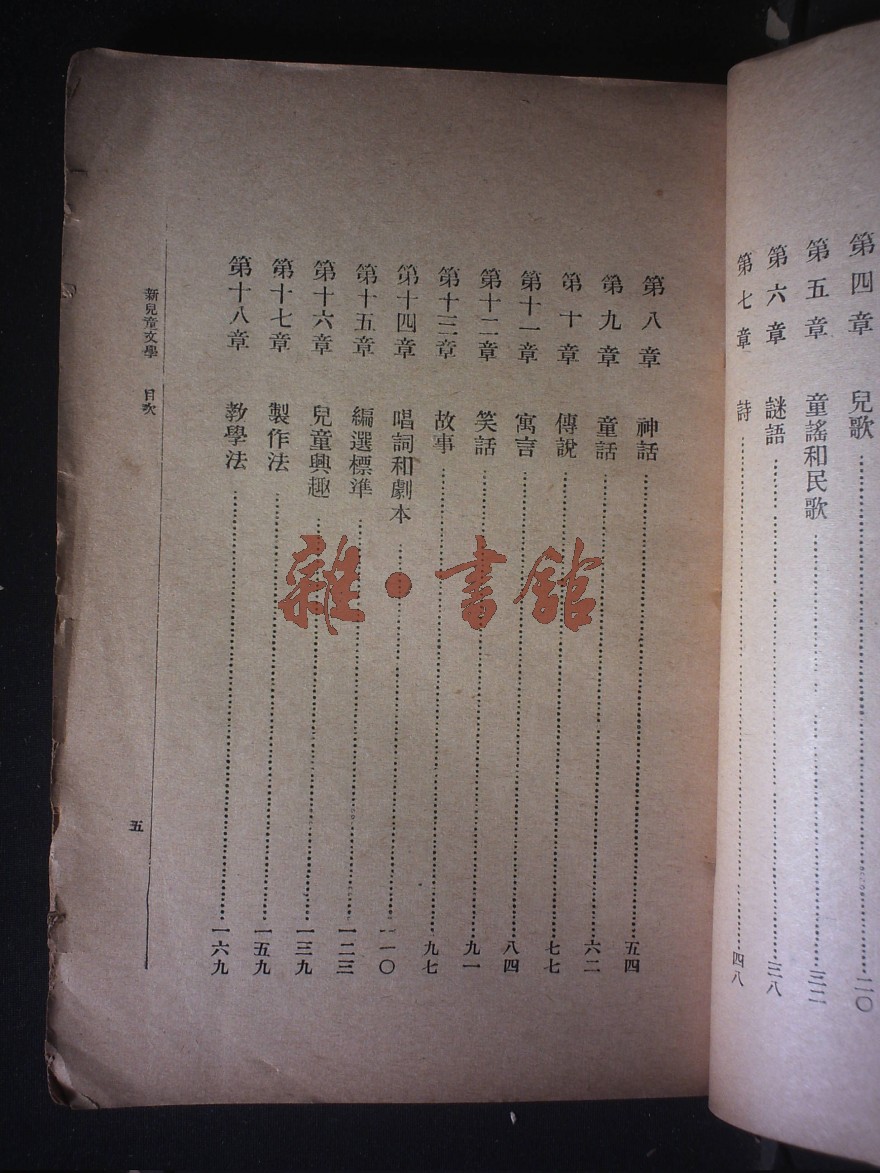 第四章 兒歌 二〇
第五章 童謠和民歌 三二
第六章 謎語 三八
第七章 詩 四八
第八章 神話 五四
第九章 童話 六二
第十章 傳說 七七
第十一章 寓言 八四
第十二章 笑話 九一
第十三章 故事 九七
第十四章 唱詞和劇本 一一〇
第十五章 編選標準 一二三
第十六章 兒童興趣 一三九
第十七章 製作法 一五九
第十八章 教學法 一六九
新兒童文學 目次 五
雜·書館